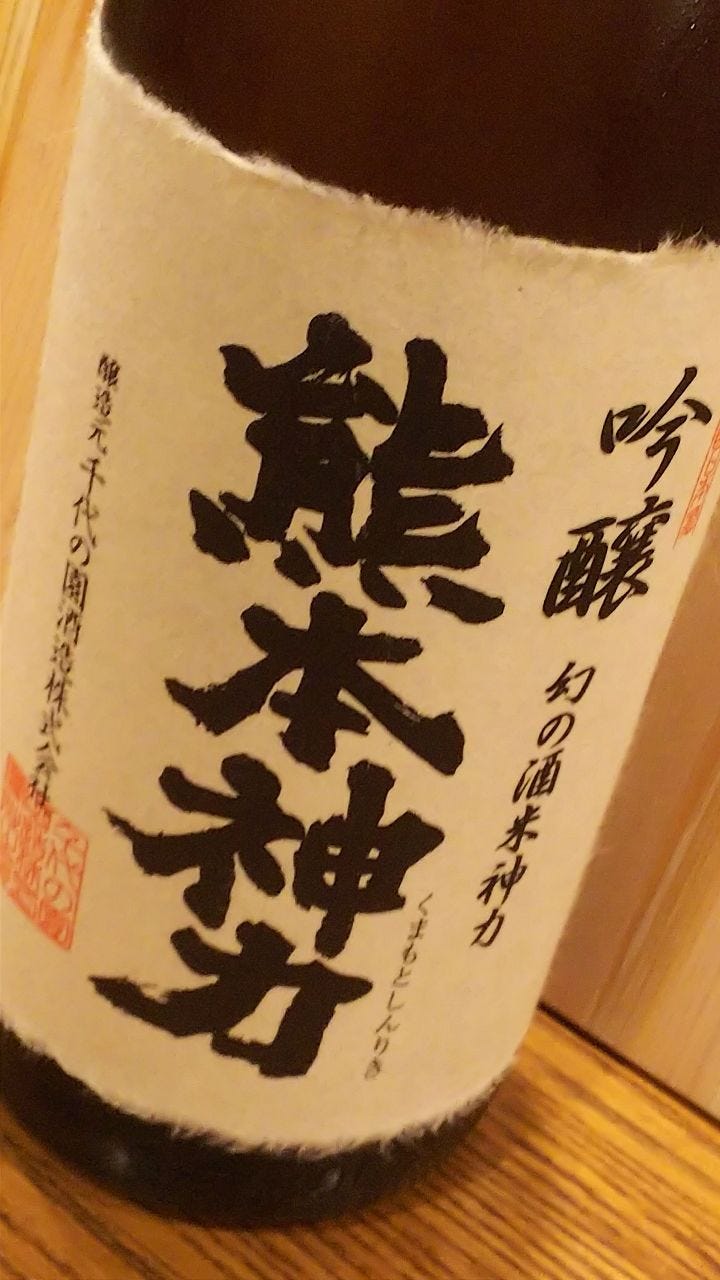 吟醸
幻の酒米神力
熊本神力
くまもとしんりき
醸造元 千代の園酒造株式会社